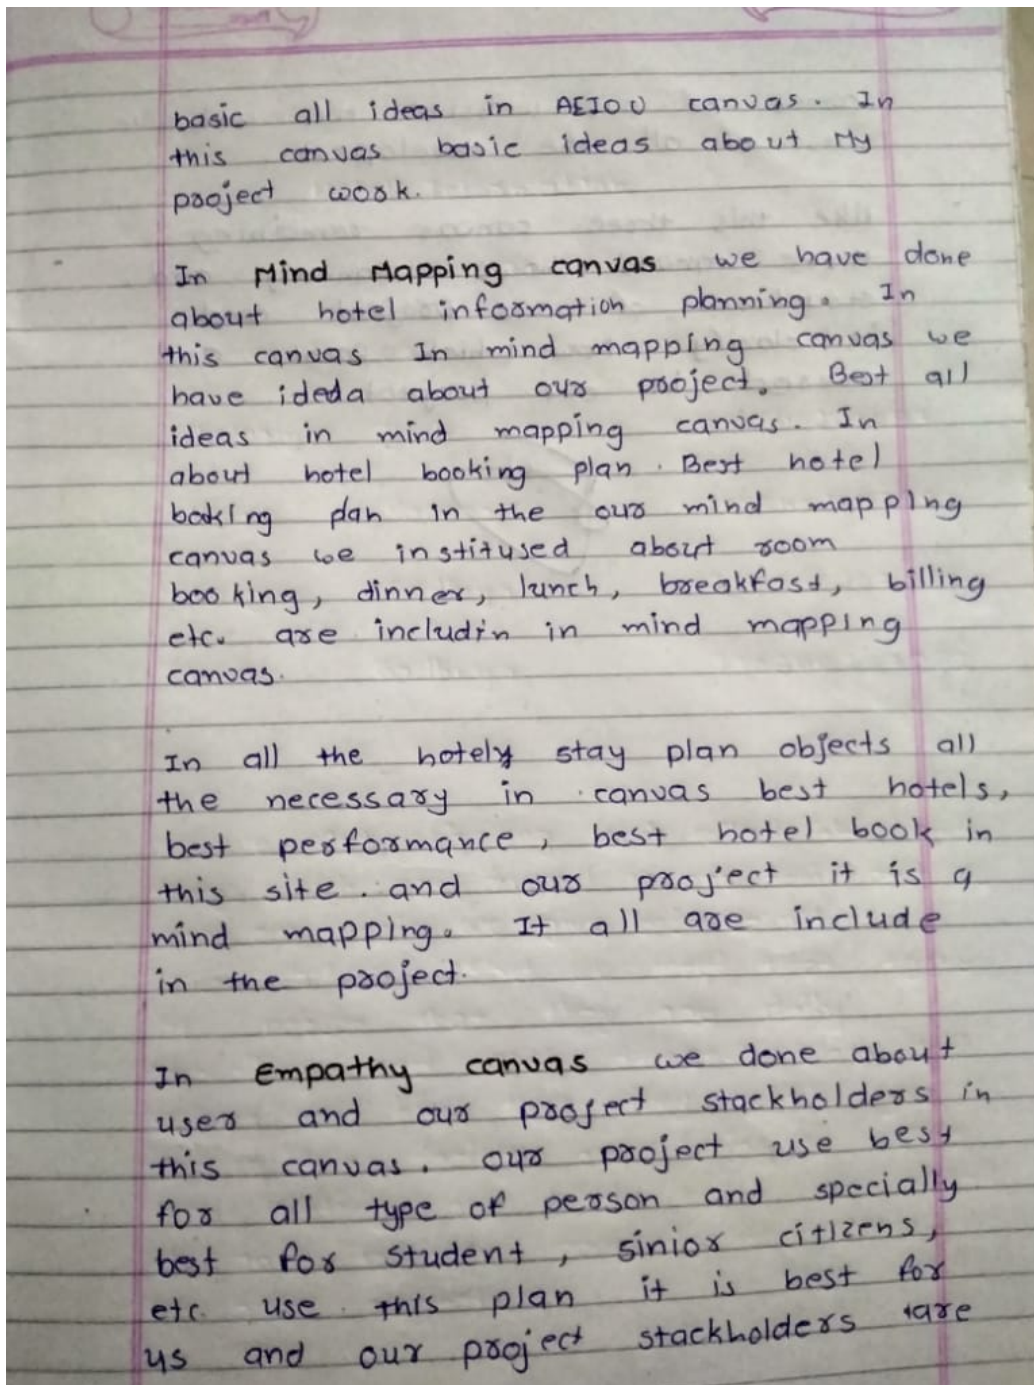 basic all ideas in AEIOU canvas. In
this canvas basic ideas about My
project work.
In Mind Mapping canvas we have done
about hotel information planning. In
this canvas In mind mapping canvas we
have ideda about our project. Best all
ideas in mind mapping canvas. In
about hotel booking plan. Best hotel
boking plan in the our mind mapping
canvas we institused about room
booking, dinner, lunch, breakfast, billing
etc. are includin in mind mapping
canvas.
In all the hotely stay plan objects all
the necessary in canvas best hotels,
best performance, best hotel book in
this site. and our project it is a
mind mapping. It all are include
in the project.
In Empathy canvas we done about
user and our project stackholders in
this canvas. our project use best
for all type of person and specially
best for student, sinior citizens,
etc. use this plan it is best for
us and our project stackholders are